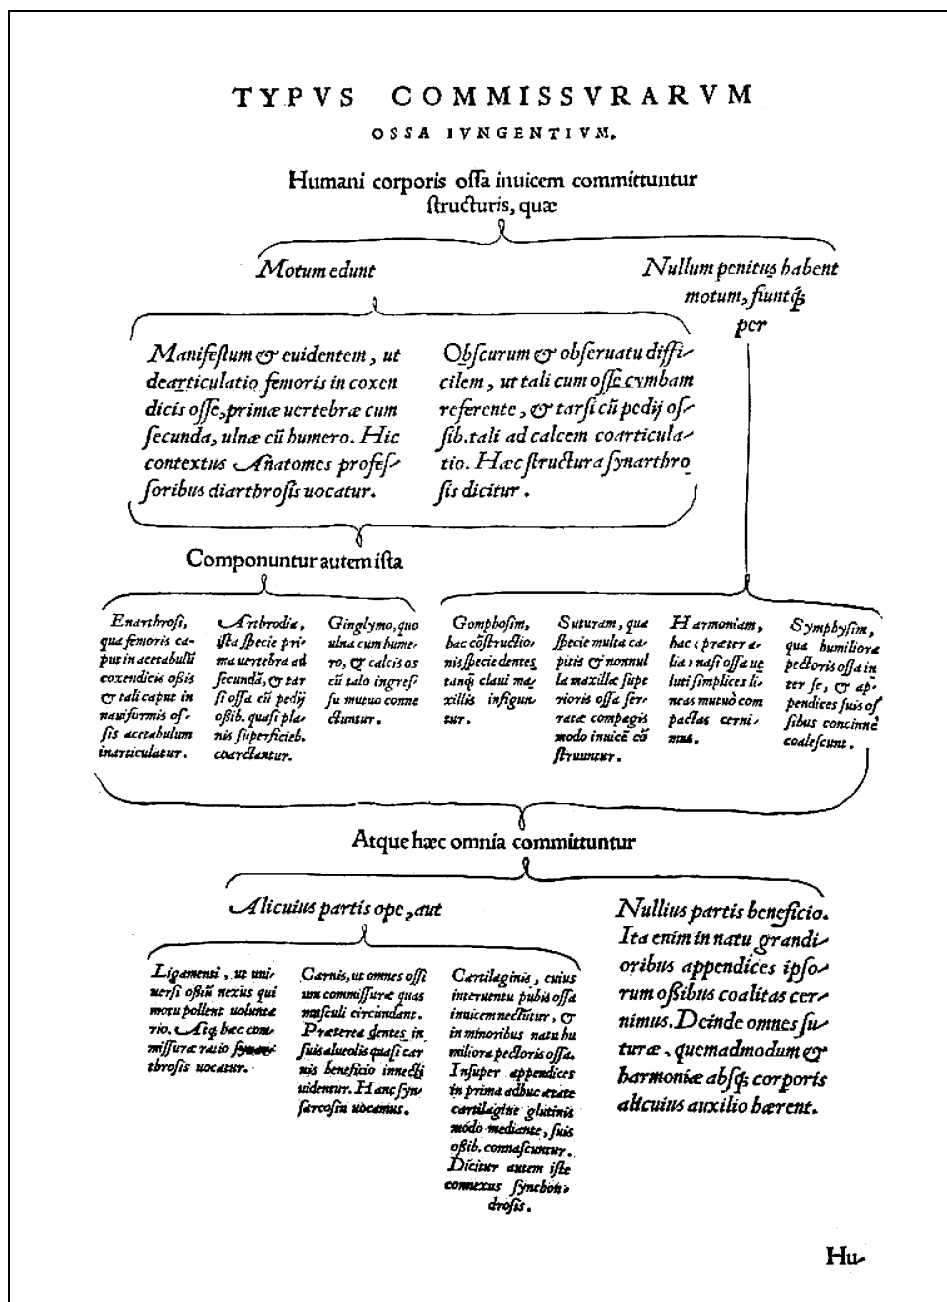 TYPVS COMMISSVRARVM
OSSA IVNGENTIVM.
Humani corporis oſſa inuicem committuntur
ſtructuris, quæ
Motum edunt
Nullum penitus habent
motum, fiuntq́;
per
Manifeſtum & euidentem, ut
dearticulatio femoris in coxen
dicis oſſe, primæ uertebræ cum
ſecunda, ulnæ cũ humero. Hic
contextus Anatomes profeſ-
ſoribus diarthroſis uocatur.
Obſcurum & obſeruatu diffi-
cilem, ut tali cum oſſe cymbam
referente, & tarſi cũ pedij oſ-
ſib. tali ad calcem coarticula-
tio. Hæc ſtructura ſynarthro
ſis dicitur.
Componuntur autem iſta
Enarthroſi,
qua femoris ca-
put in acetabulũ
coxendicis oßis
& tali caput in
nauiformis oſ-
ſis acetabulum
inarticulatur.
Arthrodia,
iſta ſpecie pri-
ma uertebra ad
ſecundã, & tar
ſi oſſa cũ pedij
oßib. quaſi pla-
nis ſuperficieb.
coarctantur.
Ginglymo, quo
ulna cum hume-
ro, & calcis os
cũ talo ingreſ-
ſu mutuo conne
ctuntur.
Gomphoſim,
hac cõſtructio-
nis ſpecie dentes
tanq̃ claui ma-
xillis infigun-
tur.
Suturam, qua
ſpecie multa ca-
pitis & nonnul
la maxillæ ſupe
rioris oſſa ſer-
ratæ compagis
modo inuicẽ cõ
ſtruuntur.
Harmoniam,
hac præter a-
lia naſi oſſa ue
luti ſimplices li-
neas mutuò com
pactas cerni-
mus.
Symphyſim,
qua humiliora
pectoris oſſa in
ter ſe, & ap-
pendices ſuis oſ
ſibus concinnè
coaleſcunt.
Atque hæc omnia committuntur
Alicuius partis ope, aut
Nullius partis beneficio.
Ita enim in natu grandi-
oribus appendices ipſo-
rum oßibus coalitas cer-
nimus. Deinde omnes ſu-
turæ, quemadmodum &
harmoniæ abſq; corporis
alicuius auxilio hærent.
Ligamenti, ut uni-
uerſi oßiũ nexus qui
motu pollent uolunta
rio. Atq; hæc com-
miſſuræ ratio ſyneu-
throſis uocatur.
Carnis, ut omnes oſſi
um commiſſuræ quas
muſculi circundant.
Præterea dentes in
ſuis alueolis quaſi car
nis beneficio innecti
uidentur. Hanc ſyn-
ſarcoſin uocamus.
Cartilaginis, cuius
interuentu pubis oſſa
inuicem nectũtur, &
in minoribus natu hu
miliora pectoris oſſa.
Inſuper appendices
in prima adhuc ætate
cartilagine glutinis
modo mediante, ſuis
oßib. connaſcuntur.
Dicitur autem iſte
connexus ſynchon-
droſis.
Hu-